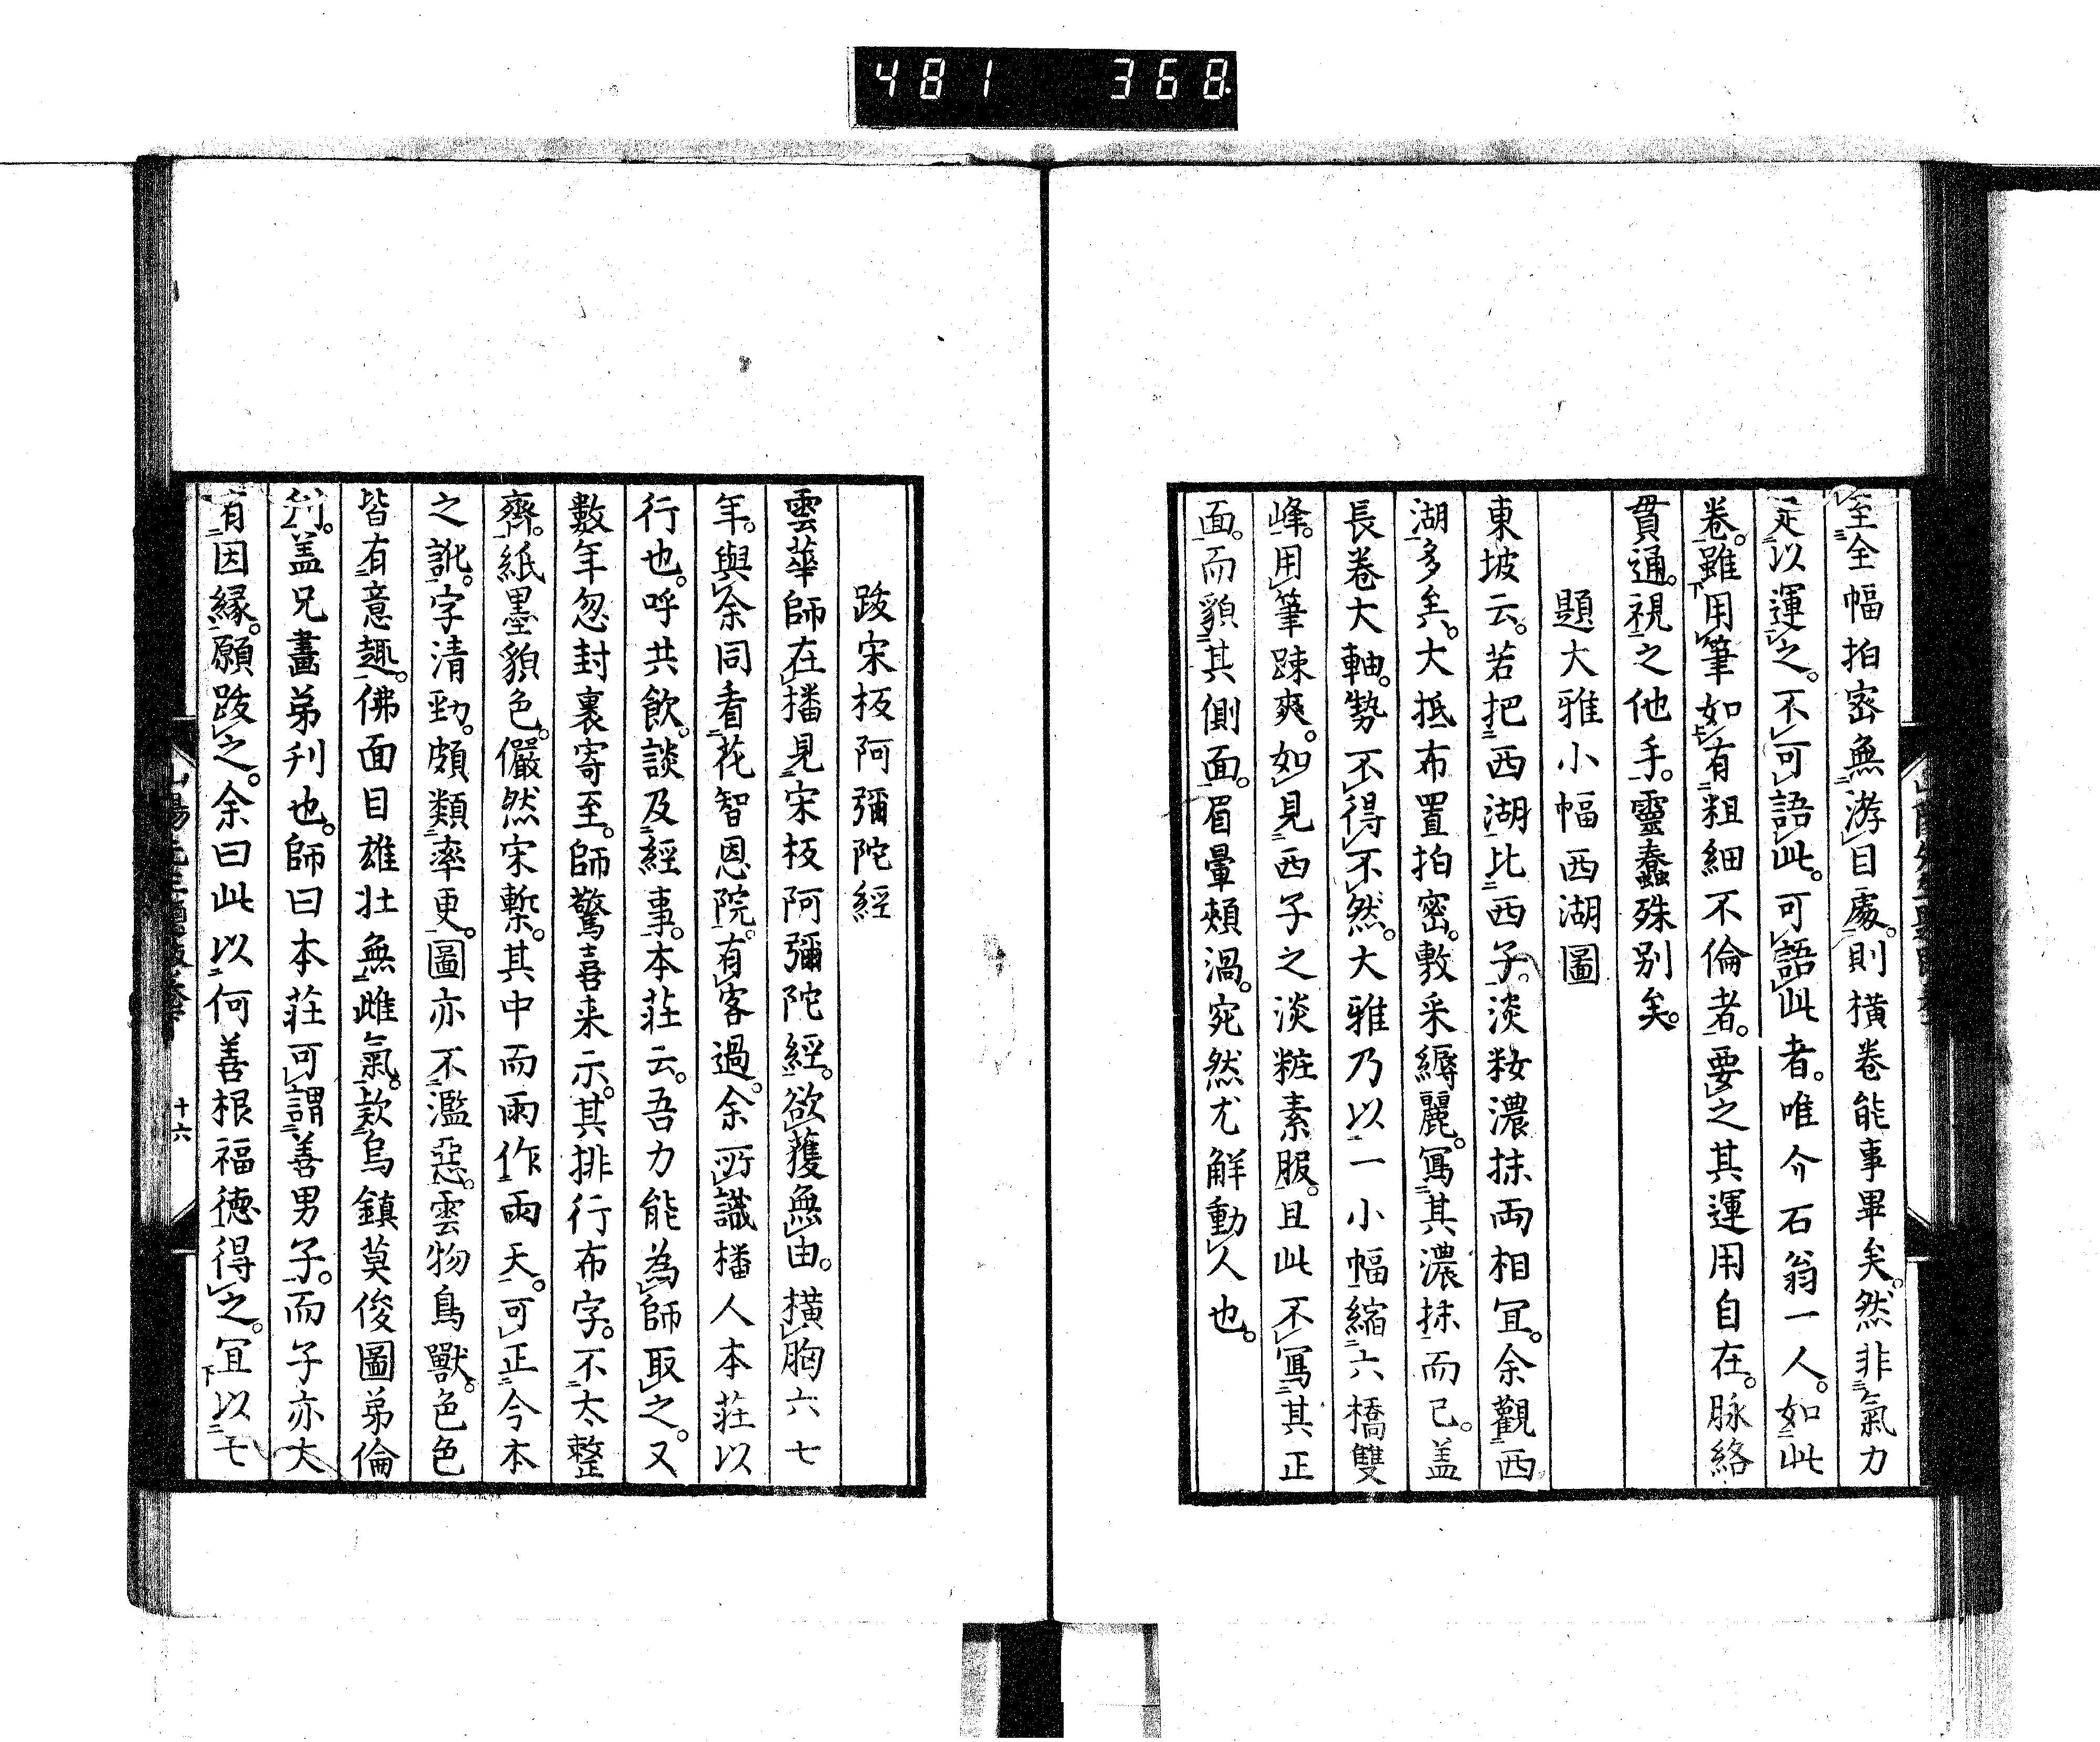 481 368
至全幅拍密無游目處。則橫卷能事畢矣。然非氣力
足以運之。不可語此。可語此者。唯介石翁一人。如此
卷。雖用筆如有粗細不倫者。要之其運用自在。脉絡
貫通。視之他手。靈蠢殊別矣。
題大雅小幅西湖圖
東坡云。若把西湖比西子。淡妝濃抹両相宜。余觀西
湖多矣。大抵布置拍密。敷采縟麗。寫其濃抹而已。盖
長卷大軸。勢不得不然。大雅乃以一小幅縮六橋雙
峰。用筆踈爽。如見西子之淡粧素服。且此不寫其正
面。而貌其側面。眉暈頰渦。宛然尤解動人也。
跋宋板阿彌陀經
雲華師在播見宋板阿彌陀經。欲獲無由。橫胸六七
年。與余同看花智恩院。有客過。余所識播人本莊以
行也。呼共飲。談及經事。本莊云。吾力能為師取之。又
數年忽封裹寄至。師驚喜来示。其排行布字。不太整
齊。紙墨貌色。儼然宋槧。其中而雨作雨天。可正今本
之訛。字清勁。頗類率更。圖亦不濫惡。雲物鳥獸。色色
皆有意趣。佛面目雄壮無雌氣。欵烏鎮莫俊圖弟倫
刋。盖兄畫弟刋也。師曰本莊可謂善男子。而子亦大
有因縁。願跋之。余曰此以何善根福徳得之。冝以七
十六